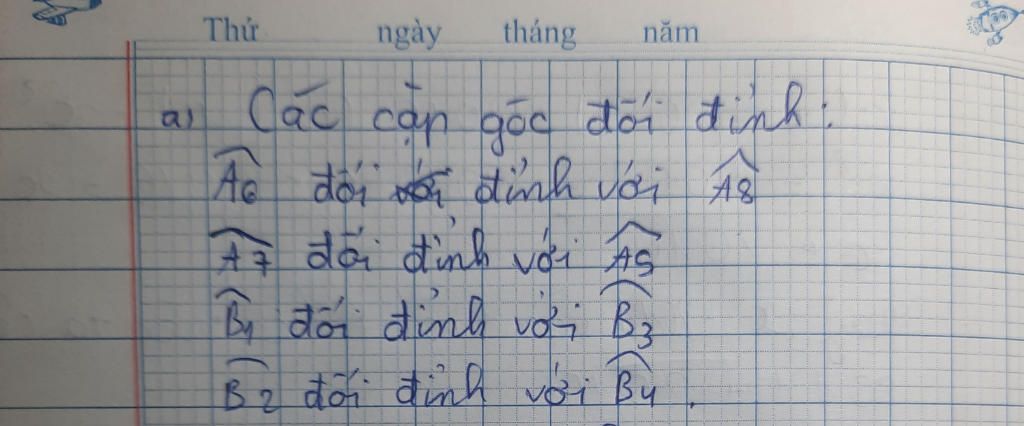 Thứ ngày tháng năm
a) Các cặp góc đối đỉnh:
A6 đối đỉnh với A8
A7 đối đỉnh với A5
B1 đối đỉnh với B3
B2 đối đỉnh với B4.